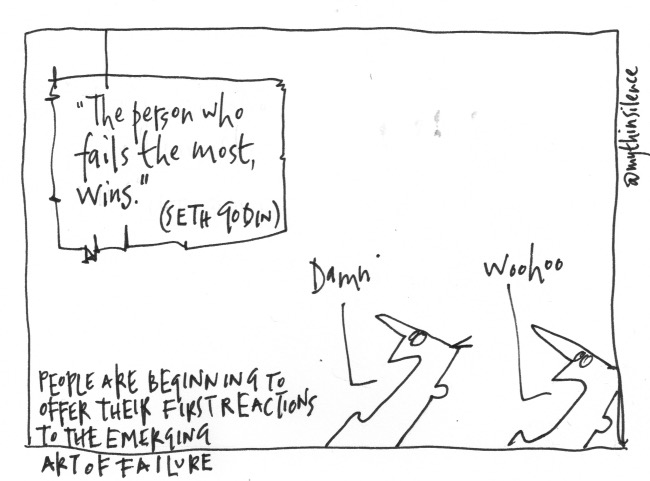 "The person who
fails the most,
wins."
(SETH GODIN)
Damn
Woohoo
PEOPLE ARE BEGINNING TO
OFFER THEIR FIRST REACTIONS
TO THE EMERGING
ART OF FAILURE
@mythinsilence